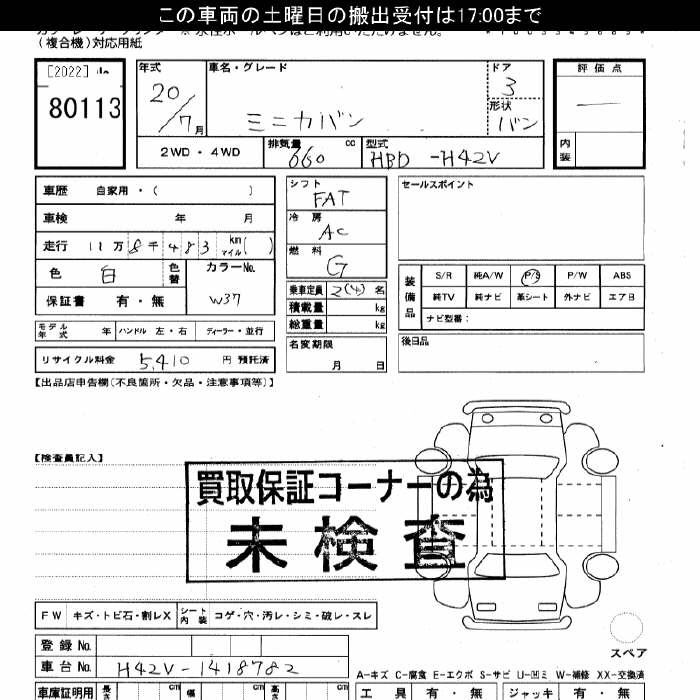 この車両の土曜日の搬出受付は17:00まで
(複合機)対応用紙
[2022]
80113
年式 車名・グレード ドア 評価点
20/7月 ミニカバン 3 —
形状 バン
内装
2WD・4WD 排気量 660 cc 型式 HBD-H42V
車歴 自家用・( )
車検 年 月
走行 11万8千483 km マイル( )
色 白 色替 カラーNo. W37
保証書 有・無
シフト FAT
冷房 AC
燃料 G
乗車定員 2(4)名
積載量 kg
総重量 kg
セールスポイント
装備品 S/R 純A/W P/S P/W ABS
純TV 純ナビ 革シート 外ナビ エアB
ナビ型番:
モデル年式 年 ハンドル 左・右 ディーラー・並行
名変期限 月 日
後日品
リサイクル料金 5,410 円 預託済
【出品店申告欄(不良箇所・欠品・注意事項等)】
【検査員記入】
買取保証コーナーの為
未検査
FW キズ・トビ石・割レX シート内装 コゲ・穴・汚レ・シミ・破レ・スレ
スペア
登録No.
車台No. H42V-1418782
A-キズ C-腐食 E-エクボ S-サビ U-凹ミ W-補修 XX-交換済
車庫証明用 長さ cm 幅 cm 高さ cm 工具 有・無 ジャッキ 有・無